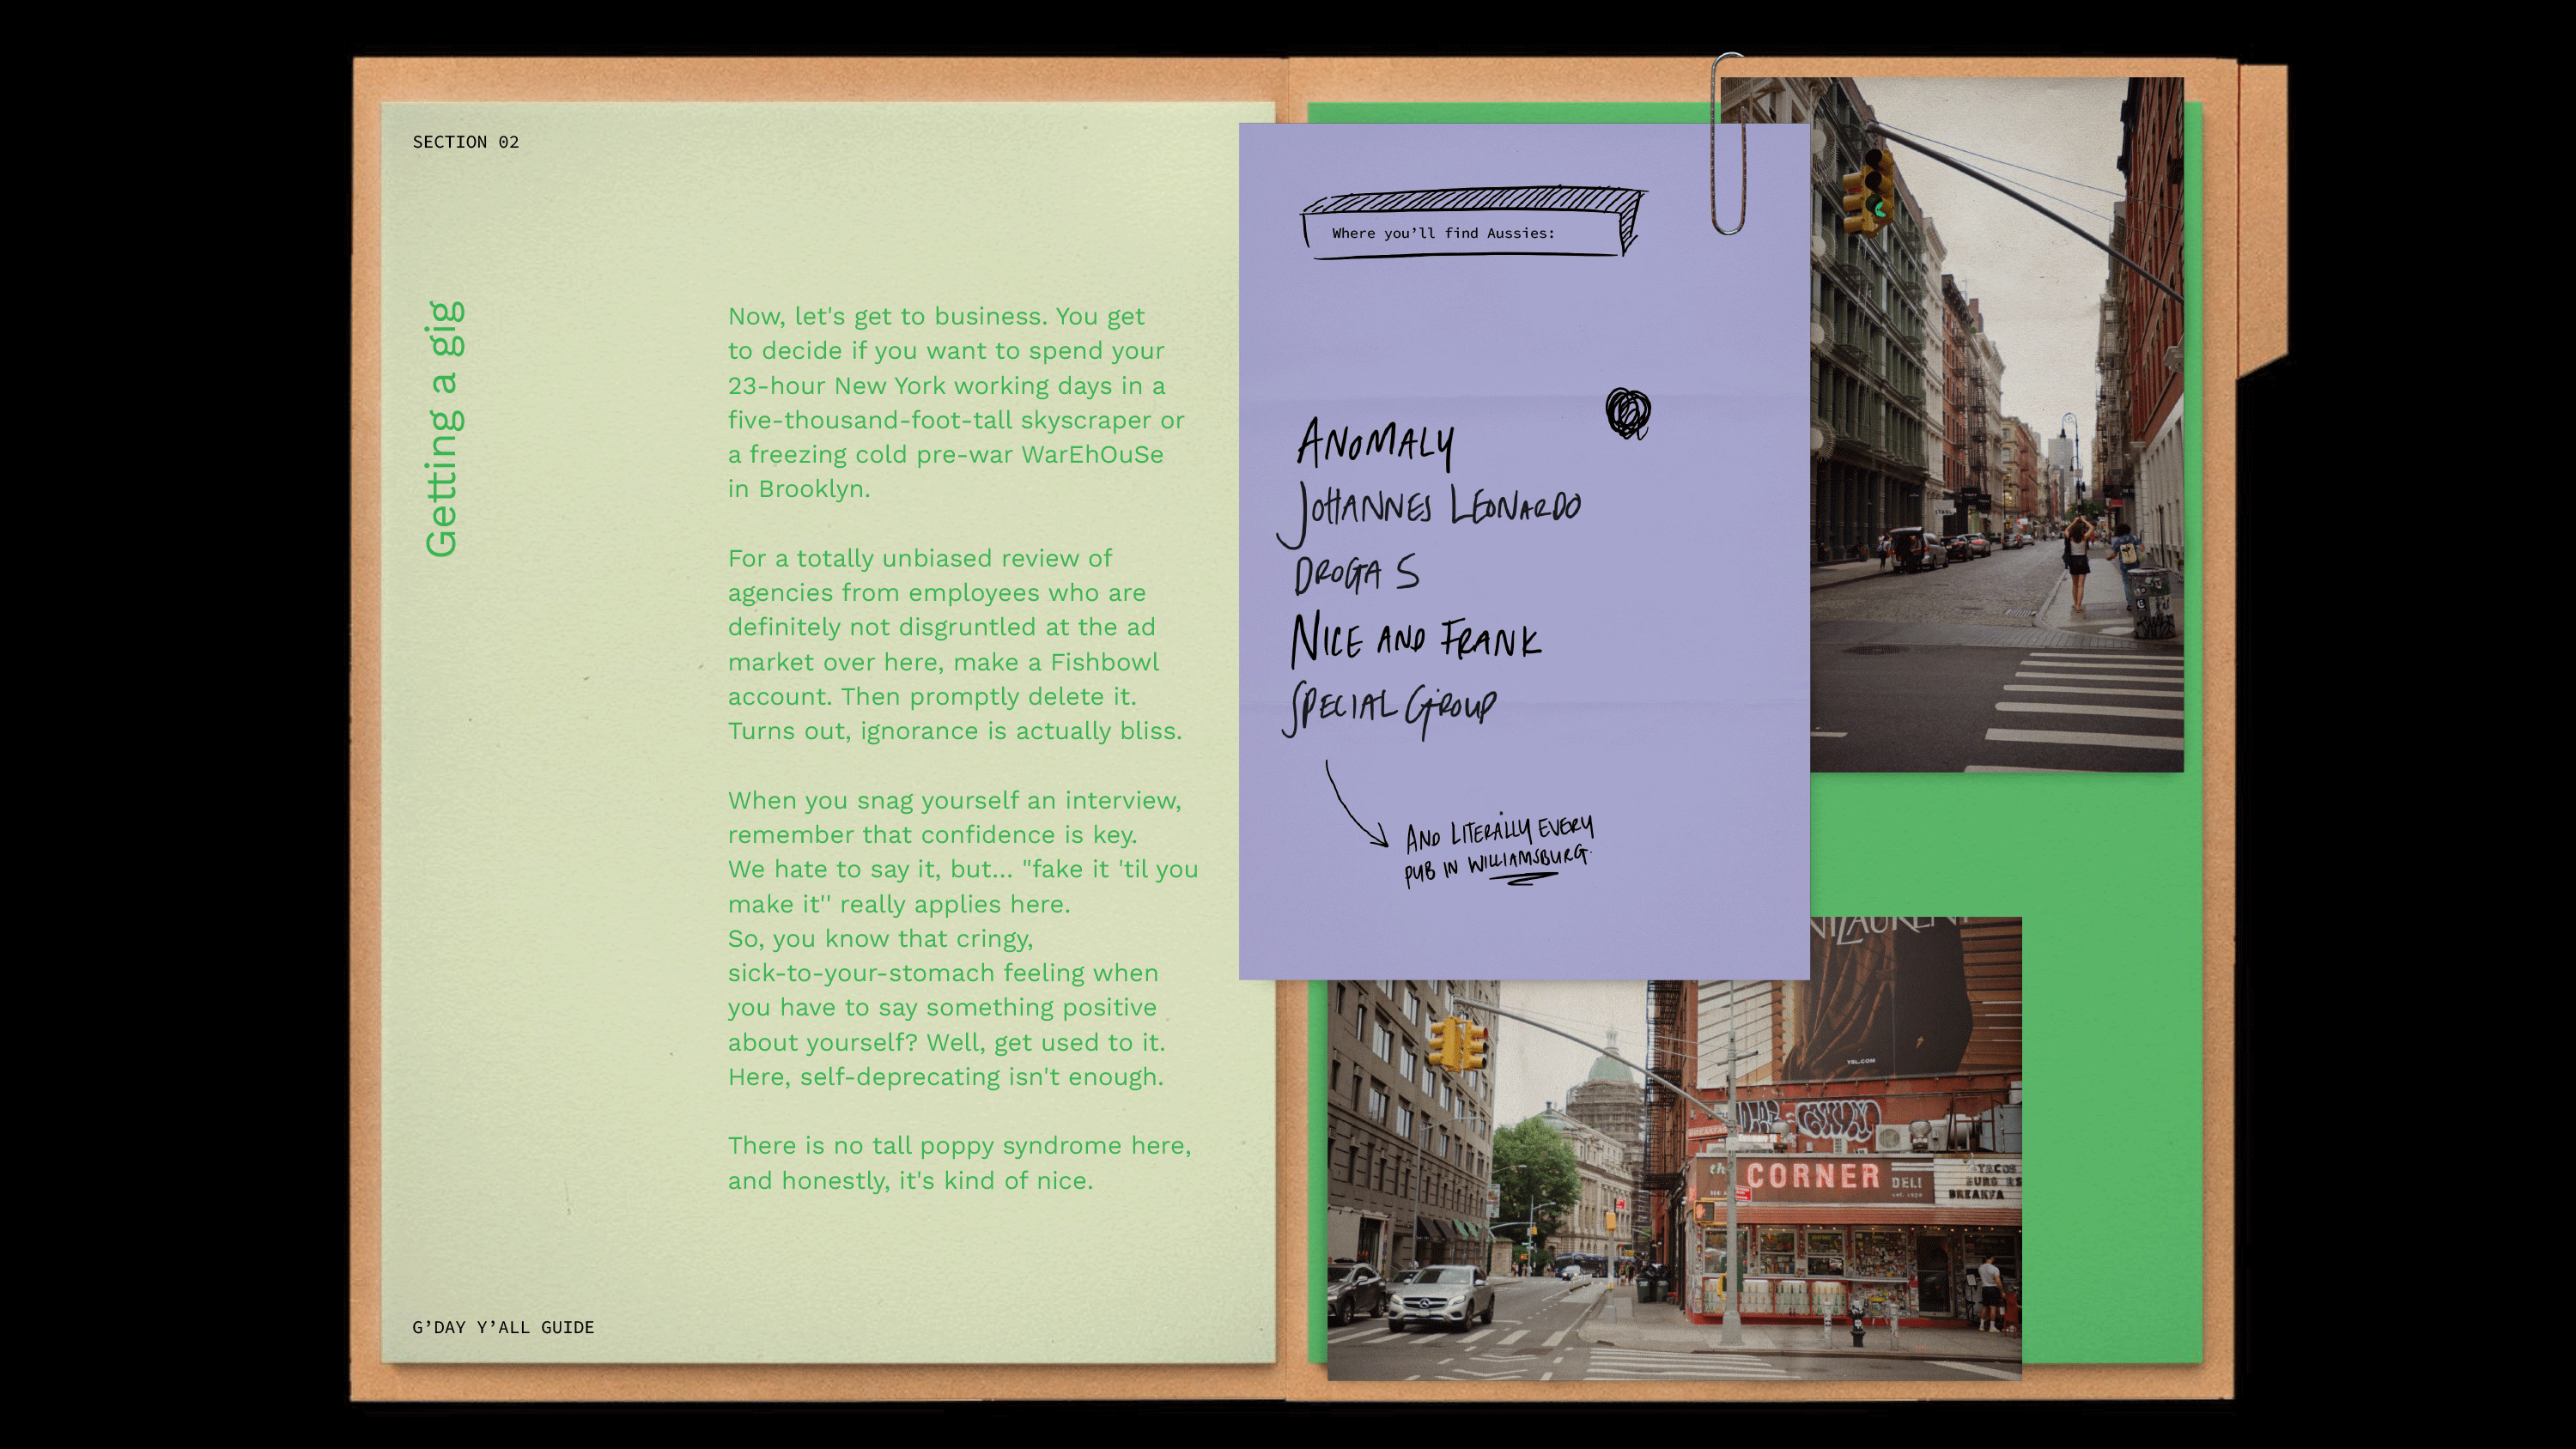 SECTION 02
Getting a gig
Now, let's get to business. You get
to decide if you want to spend your
23-hour New York working days in a
five-thousand-foot-tall skyscraper or
a freezing cold pre-war WarEhOuSe
in Brooklyn.
For a totally unbiased review of
agencies from employees who are
definitely not disgruntled at the ad
market over here, make a Fishbowl
account. Then promptly delete it.
Turns out, ignorance is actually bliss.
When you snag yourself an interview,
remember that confidence is key.
We hate to say it, but... "fake it 'til you
make it'' really applies here.
So, you know that cringy,
sick-to-your-stomach feeling when
you have to say something positive
about yourself? Well, get used to it.
Here, self-deprecating isn't enough.
There is no tall poppy syndrome here,
and honestly, it's kind of nice.
G’DAY Y’ALL GUIDE
Where you’ll find Aussies:
ANOMALY
JOHANNES LEONARDO
DROGA 5
NICE AND FRANK
SPECIAL GROUP
AND LITERALLY EVERY
PUB IN WILLIAMSBURG.
YSL.COM
CORNER DELI